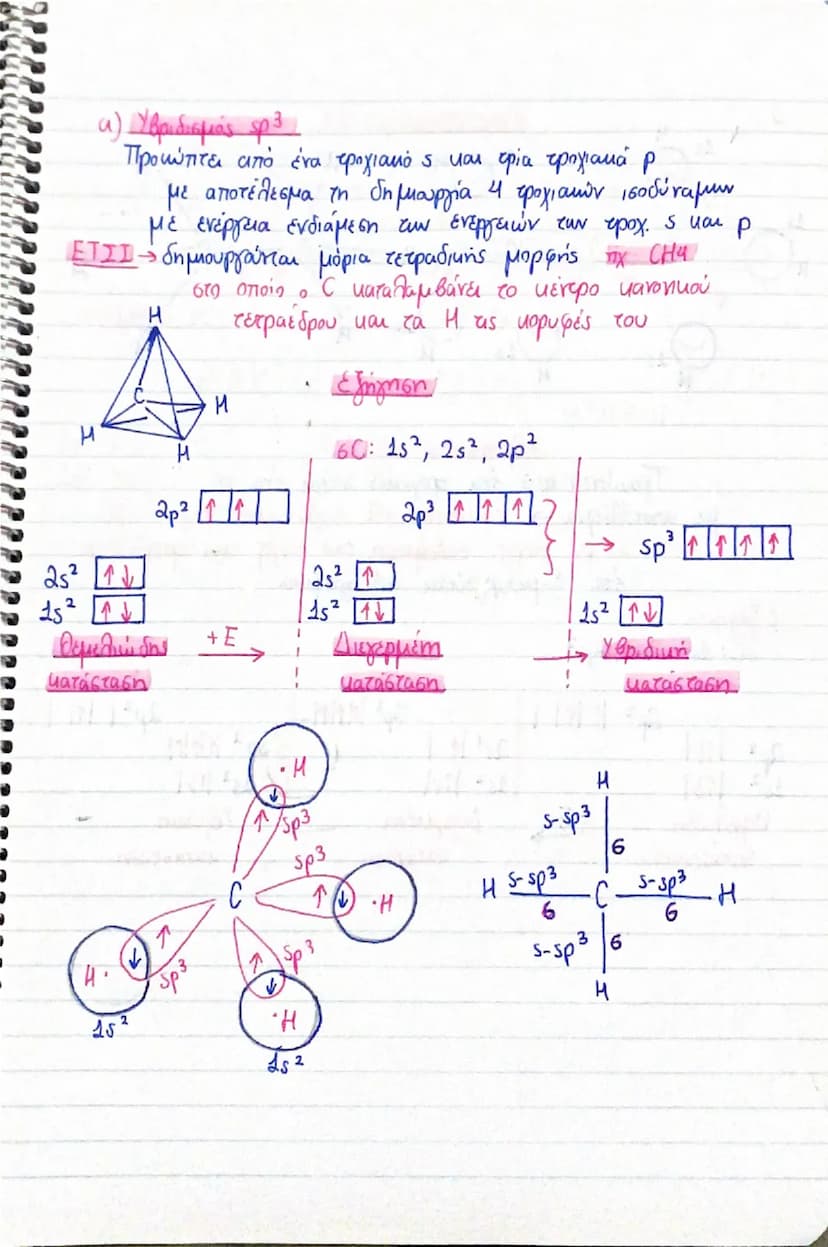 α) Υβριδισμός sp³
Προκύπτει από ένα τροχιακό s και τρία τροχιακά p
με αποτέλεσμα τη δημιουργία 4 τροχιακών ισοδύναμων
με ενέργεια ενδιάμεση των ενεργειών των τροχ. s και p
ΕΤΣΙ → δημιουργούνται μόρια τετραδικής μορφής πχ CH4
στο οποίο ο C καταλαμβάνει το κέντρο κανονικού
τετραέδρου και τα H τις κορυφές του
H
C
H
H
H
Εξήγηση
6C: 1s², 2s², 2p²
2p² ↑ ↑
2p³ ↑ ↑ ↑
→ sp³ ↑ ↑ ↑ ↑
2s² ↑↓
2s² ↑
1s² ↑↓
1s² ↑↓
1s² ↑↓
Θεμελιώδης +E → Διεγερμένη → Υβριδική
κατάσταση κατάσταση κατάσταση
·H
↓
↑ sp³
sp³
C ↑ ↓ ·H
↑ ↓ H· sp³
1s²
↑ sp³
↓
·H
1s²
H
s-sp³ 6
H s-sp³ C s-sp³ H
6 6
s-sp³ 6
H